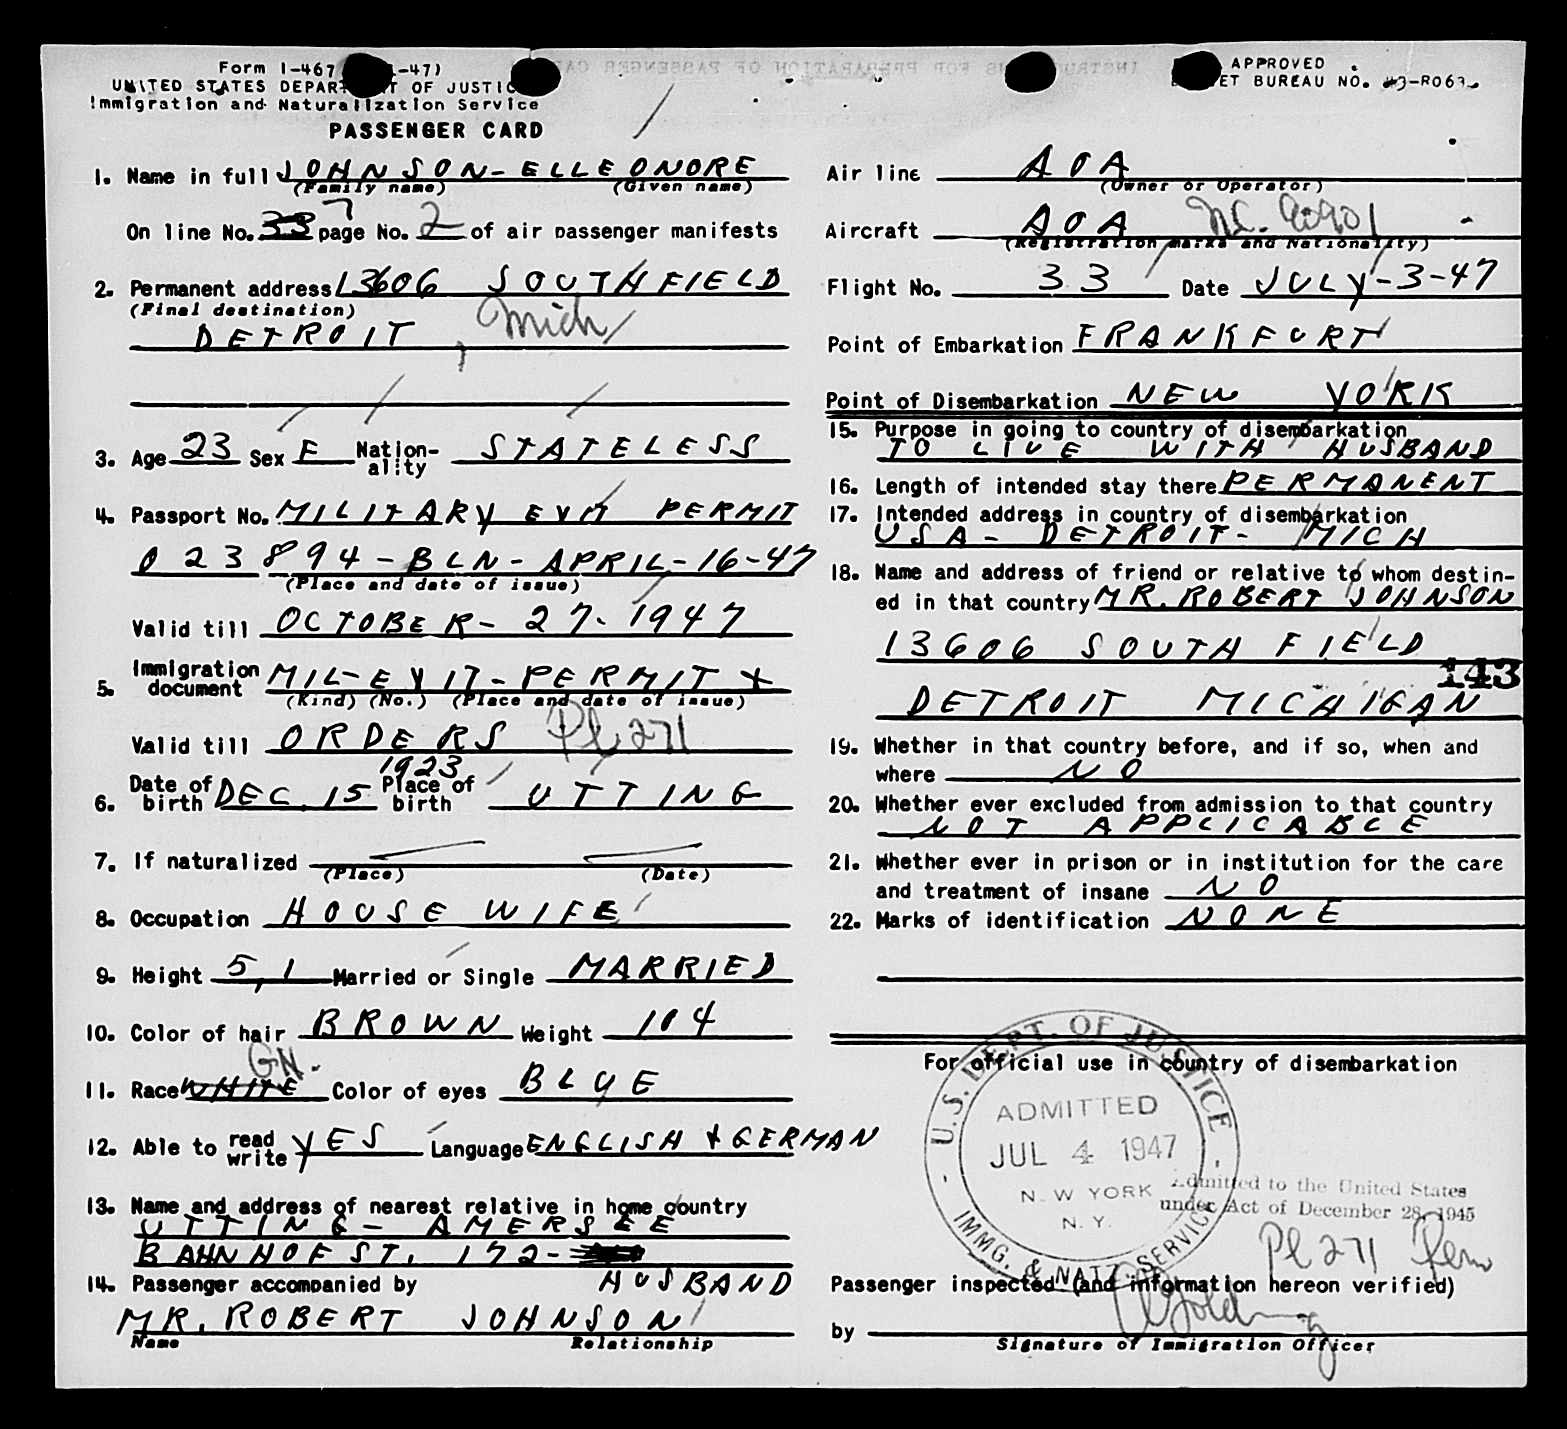 Form I-467 -47)
UNITED STATES DEPARTMENT OF JUSTICE
Immigration and Naturalization Service
PASSENGER CARD
1. Name in full JOHNSON-ELLEONORE
(Family name) (Given name)
On line No. 33 7 page No. 2 of air passenger manifests
2. Permanent address 13606 SOUTHFIELD
(Final destination)
DETROIT, Mich
3. Age 23 Sex F Nation-ality STATELESS
4. Passport No. MILITARY EXIT PERMIT
023894-BLN-APRIL-16-47
(Place and date of issue)
Valid till OCTOBER-27-1947
5. Immigration document MIL-EXIT-PERMIT +
(Kind) (No.) (Place and date of issue)
Valid till ORDERS Pl 271
1923
6. Date of birth DEC. 15 Place of birth UTTING
7. If naturalized
(Place) (Date)
8. Occupation HOUSE WIFE
9. Height 5,1 Married or Single MARRIED
10. Color of hair BROWN Weight 104
GN.
11. Race WHITE Color of eyes BLUE
12. Able to read write YES Language ENGLISH + GERMAN
13. Name and address of nearest relative in home country
UTTING-AMERSEE
BAHNHOFST. 172-
14. Passenger accompanied by HUSBAND
MR. ROBERT JOHNSON
Name Relationship
APPROVED
ET BUREAU NO. 43-R063.
Air line AOA
(Owner or Operator)
Aircraft AOA NC. 90901
(Registration marks and Nationality)
Flight No. 33 Date JULY-3-47
Point of Embarkation FRANKFURT
Point of Disembarkation NEW YORK
15. Purpose in going to country of disembarkation
TO LIVE WITH HUSBAND
16. Length of intended stay there PERMANENT
17. Intended address in country of disembarkation
USA-DETROIT-MICH
18. Name and address of friend or relative to whom destin-
ed in that country MR. ROBERT JOHNSON
13606 SOUTH FIELD
143
DETROIT MICHIGAN
19. Whether in that country before, and if so, when and
where NO
20. Whether ever excluded from admission to that country
NOT APPLICABLE
21. Whether ever in prison or in institution for the care
and treatment of insane NO
22. Marks of identification NONE
For official use in country of disembarkation
U.S. DEPT. OF JUSTICE
ADMITTED
JUL 4 1947
N.W YORK
N.Y.
IMMG. & NATZ. SERVICE
Admitted to the United States
under Act of December 28, 1945
Pl 271 Perm
Passenger inspected (and information hereon verified)
by
Signature of Immigration Officer